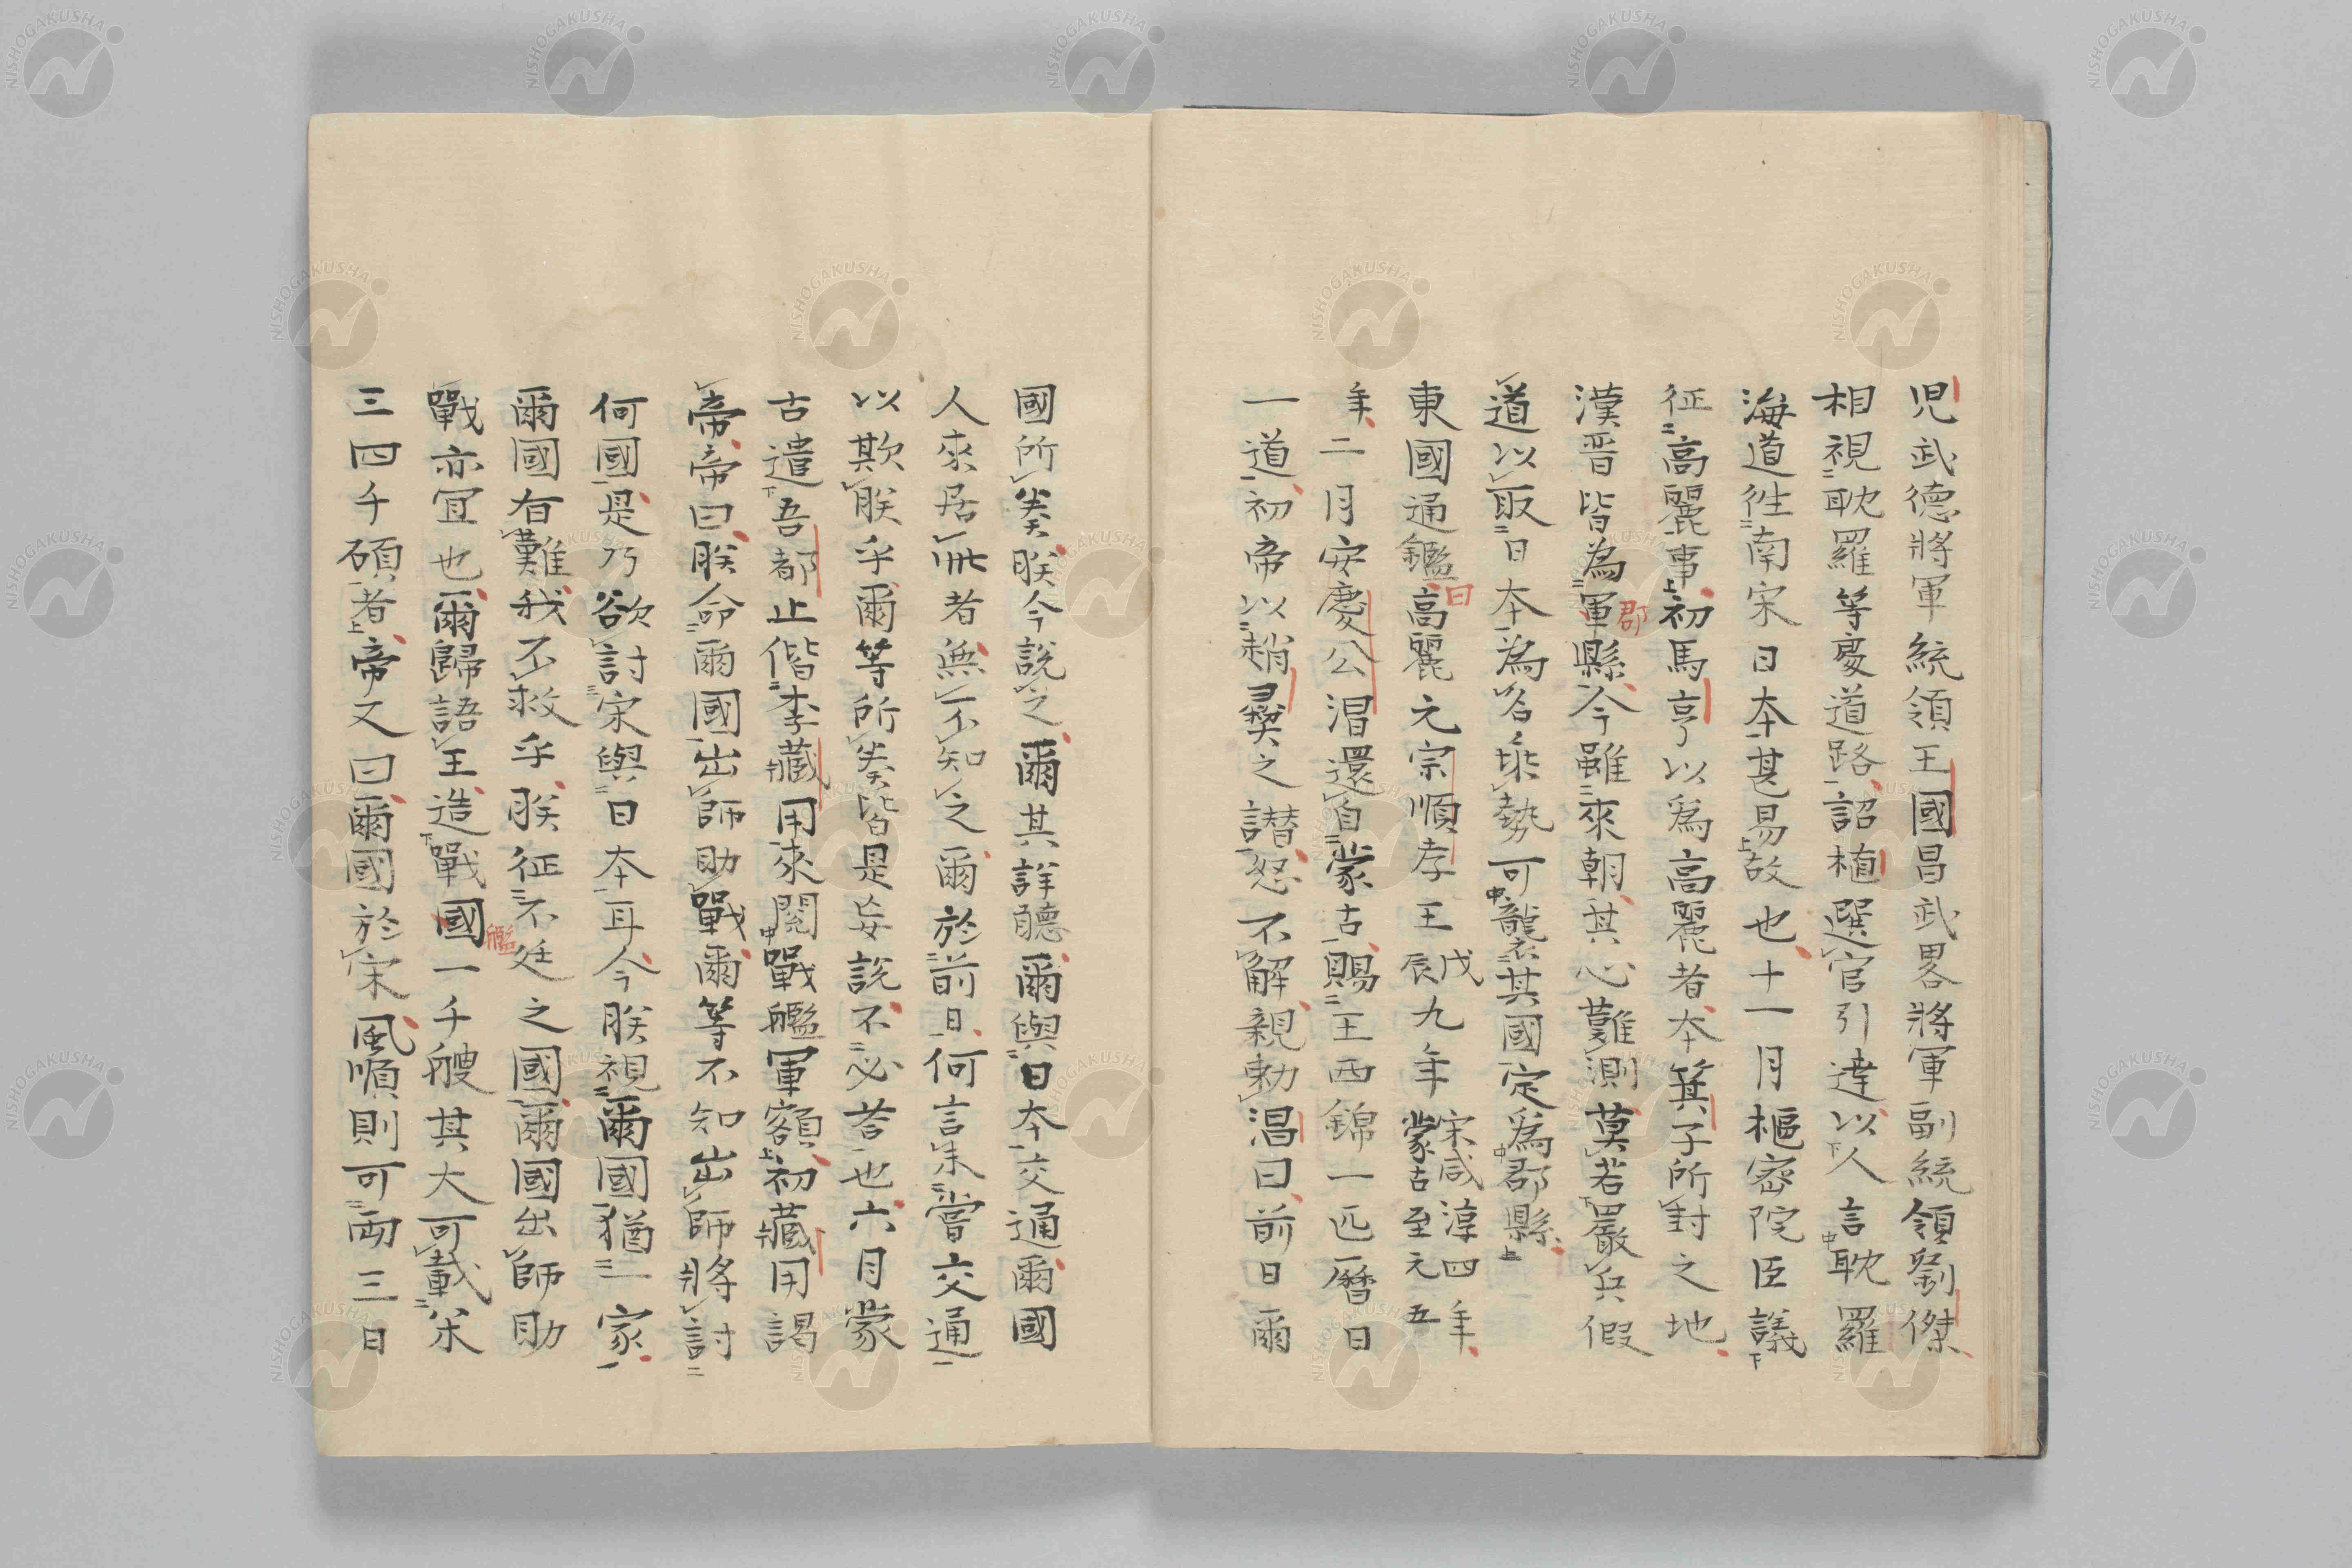 児武德將軍統領王國昌武畧將軍副統領劉傑
相視耽羅等處道路詔植選官引達以人言耽羅
海道徃南宋日夲甚易故也十一月樞密院臣議
征高麗事初馬亨以爲高麗者夲箕子所封之地
漢晋皆為軍縣今雖來朝其心難測莫若嚴兵假
郡
道以㪅日夲為名乗勢可襲其國定爲郡縣
東國通鑑高麗元宗順孝王戊辰九年宋咸淳四年蒙古至元五
曰
年二月安慶公淐還自蒙古賜王西錦一匹曆日
一道初帝以趙彛之譖怒不解親勅淐曰前日爾
國所奏朕今說之爾其詳聽爾與日夲交通爾國
人來居此者無不知之爾於前日何言未嘗交通
以欺朕乎爾等所奏皆是妄說不必荅也六月蒙
古遣吾都止偕李藏用來閱戰艦軍額初藏用謁
帝帝曰朕命爾國出師助戰爾等不知出師將討
何國是乃欲討宋與日夲耳今朕視爾國猶一家
爾國有難我不救乎朕征不廷之國爾國出師助
戰亦宜也爾歸語王造戰國一千艘其大可載米
艦
三四千碩者帝又曰爾國於宋風順則可兩三日
NISHOGAKUSHA